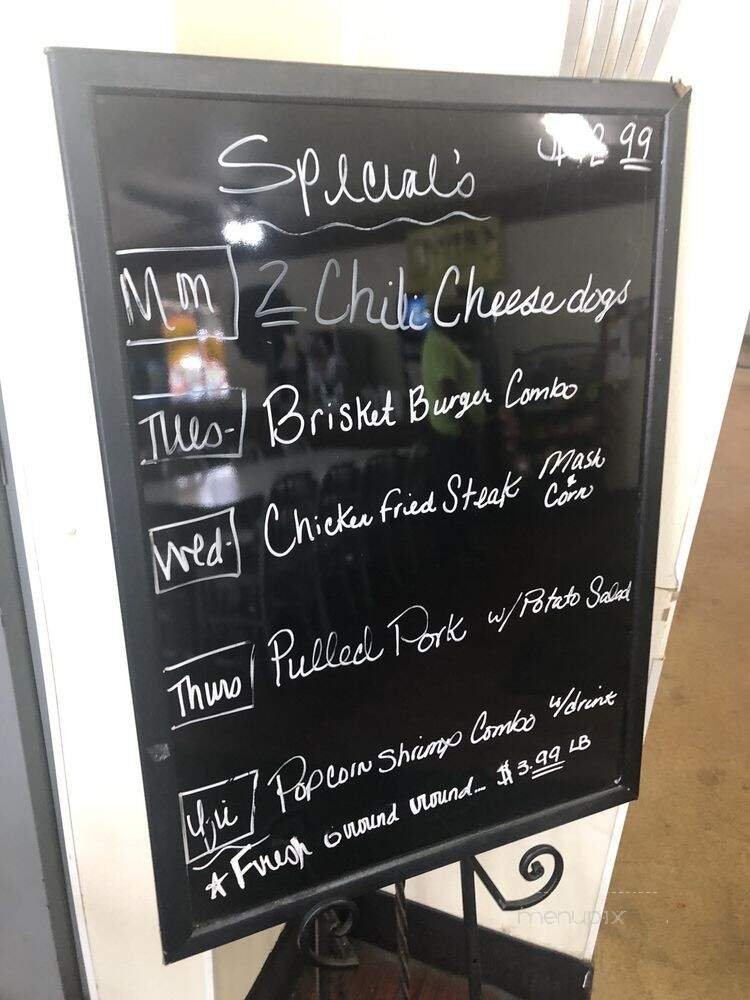 Special's
99
Mon 2 Chili Cheese dogs
Tues- Brisket Burger Combo
Wed- Chicken Fried Steak Mash & Corn
Thurs Pulled Pork w/ Potato Salad
Fri Popcorn Shrimp Combo w/ drink
* Fresh Ground round... $3.99 LB
menupix